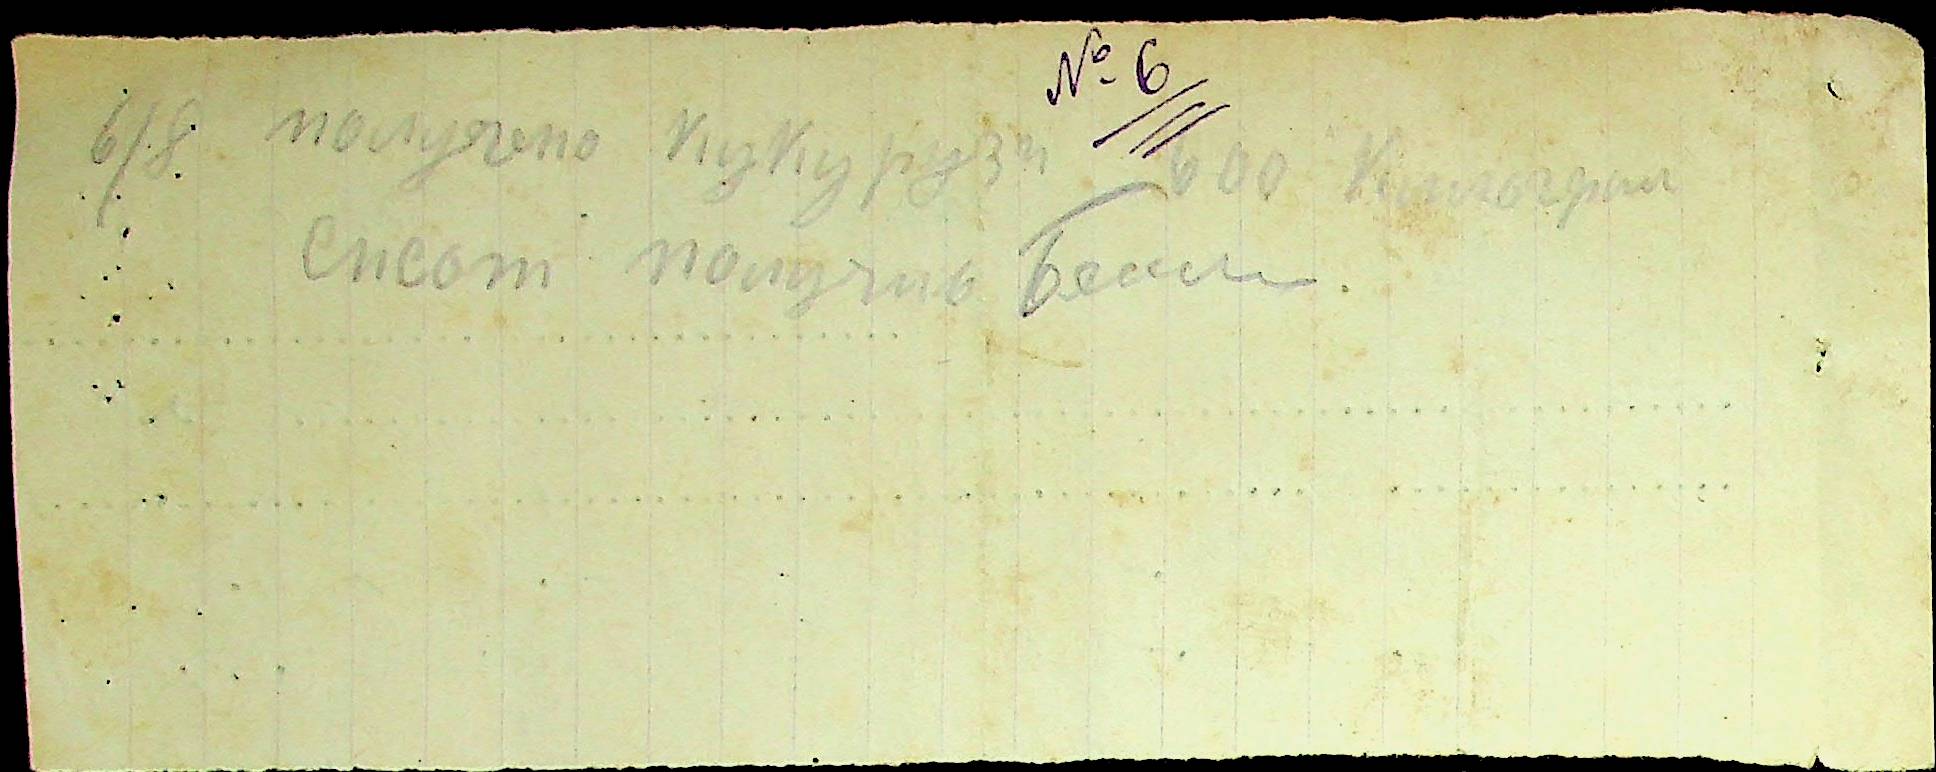 № 6
6/8 получено кукурузи 600 килограм
Списот получив